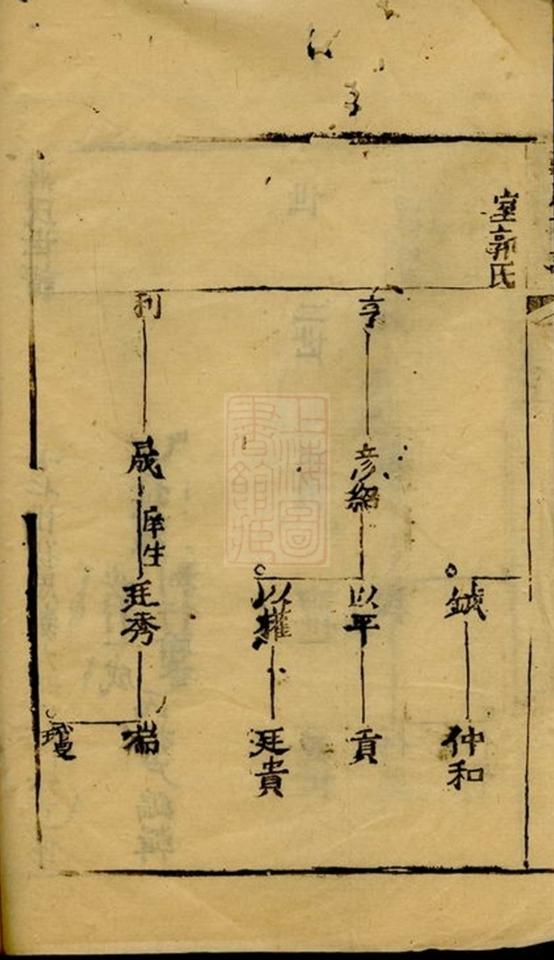 室郭氏
鉞
仲和
亨
彦紹
以平
貢
以權
廷貴
利
晟
庠生
廷秀
上海圖書館藏